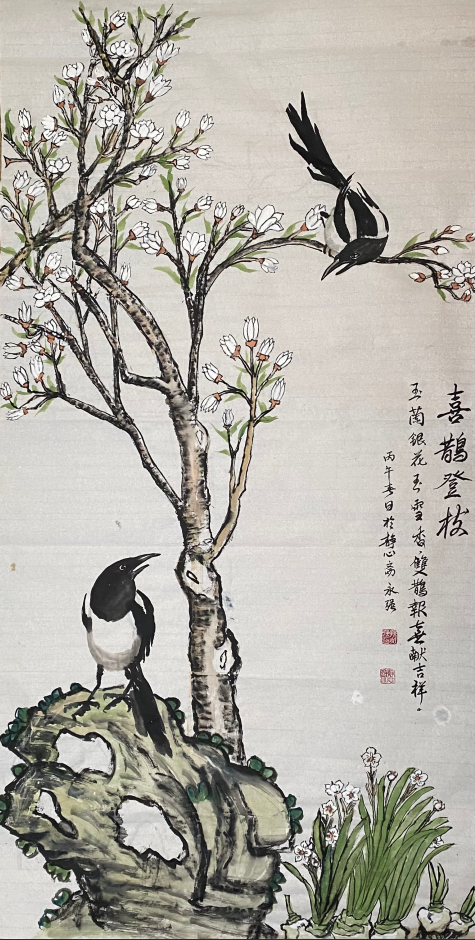 喜鵲登枝
玉蘭銀花玉雪香雙鵲報喜獻吉祥
丙午春日於静心斋永强